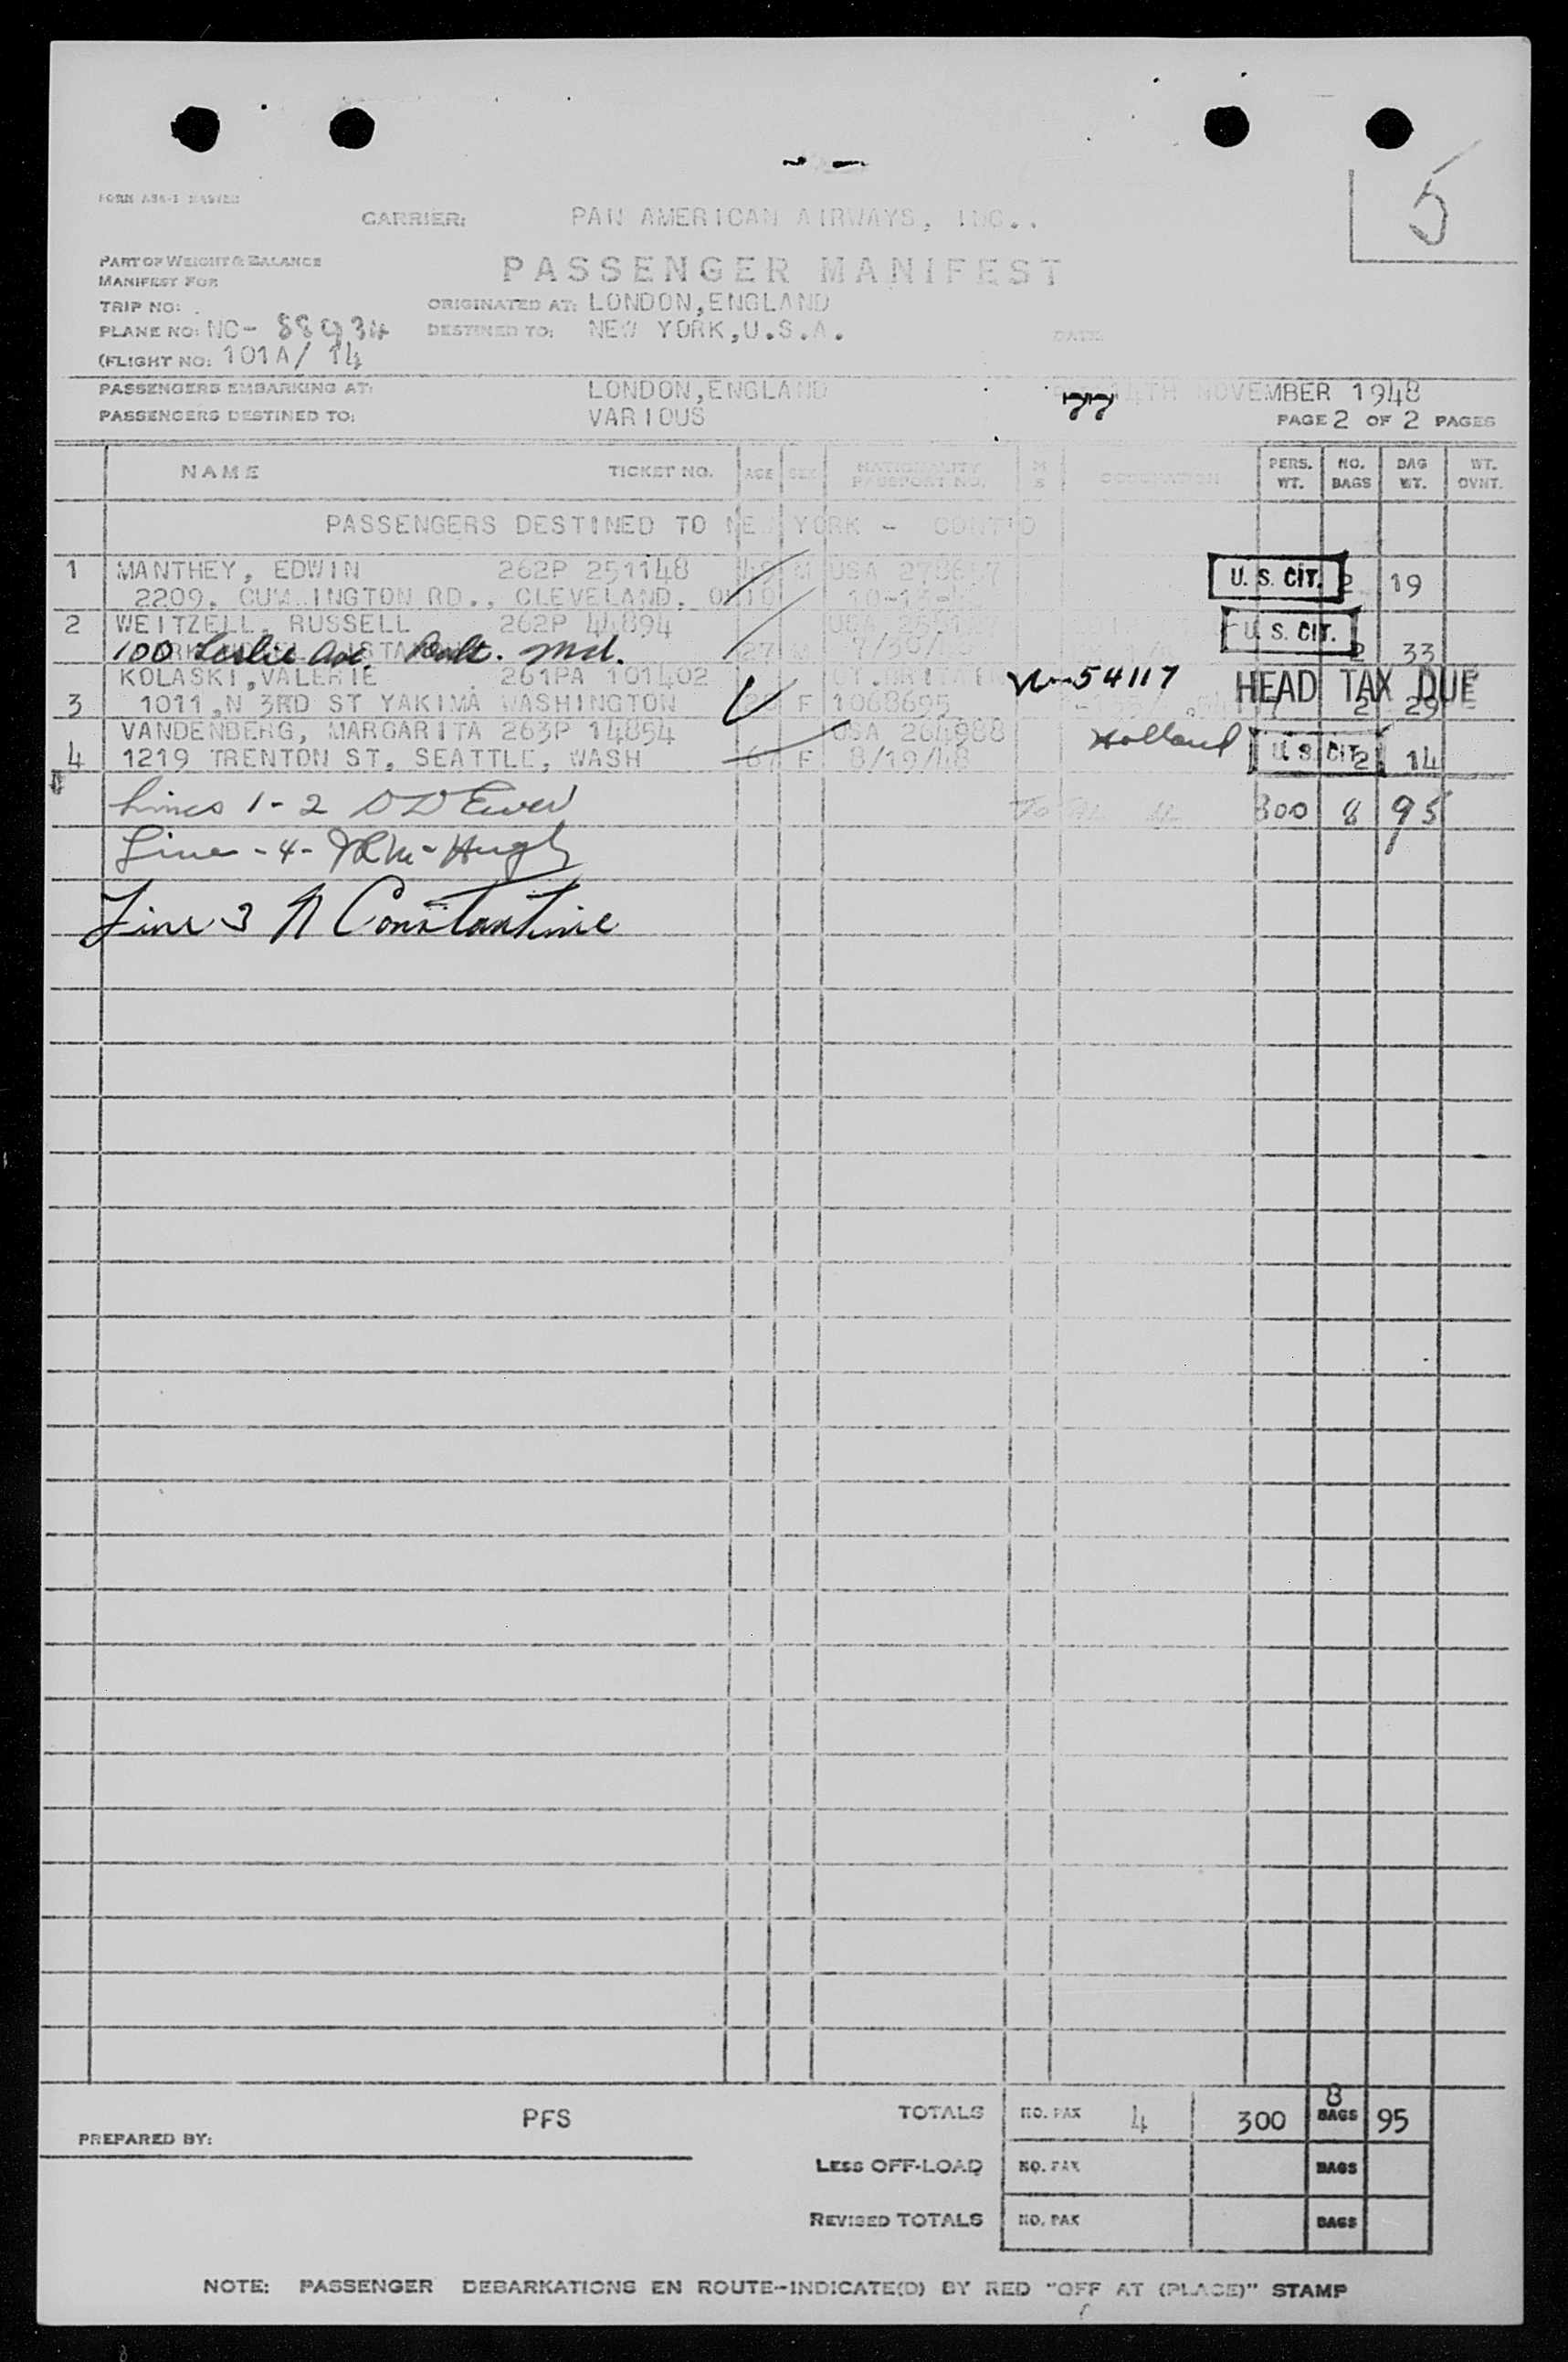 5
FORM
CARRIER: PAN AMERICAN AIRWAYS, INC..
PART OF WEIGHT & BALANCE
MANIFEST FOR
PASSENGER MANIFEST
TRIP NO:
ORIGINATED AT: LONDON, ENGLAND
PLANE NO: NC- 88934
DESTINED TO: NEW YORK, U.S.A.
DATE
(FLIGHT NO: 101A/ 14
PASSENGERS EMBARKING AT: LONDON, ENGLAND
14TH NOVEMBER 1948
PASSENGERS DESTINED TO: VARIOUS
77
PAGE 2 OF 2 PAGES
NAME TICKET NO. AGE SEX NATIONALITY PASSPORT NO. M S OCCUPATION PERS. WT. NO. BAGS BAG WT. WT. OVNT.
PASSENGERS DESTINED TO NEW YORK - CONT'D
1 MANTHEY, EDWIN 262P 251148 M USA U.S. CIT. 2 19
2209, CUMMINGTON RD., CLEVELAND, OHIO
2 WEITZELL, RUSSELL 262P 44894 27 M U.S. CIT. 2 33
100 Leslie Ave. Balt. Md.
KOLASKI, VALERIE 261PA 101402 GT.BRITAIN 54117 HEAD TAX DUE
3 1011, N 3RD ST YAKIMA WASHINGTON F 1068695 2 29
VANDENBERG, MARGARITA 263P 14854 USA 264988 Holland U.S. CIT.
4 1219 TRENTON ST, SEATTLE, WASH 67 F 8/19/48 2 14
Lines 1-2 300 8 95
Line - 4 -
Line 3 N Constantine
PFS
PREPARED BY:
TOTALS NO. PAX 4 300 8 BAGS 95
LESS OFF-LOAD NO. PAX BAGS
REVISED TOTALS NO. PAX BAGS
NOTE: PASSENGER DEBARKATIONS EN ROUTE--INDICATE(D) BY RED "OFF AT (PLACE)" STAMP